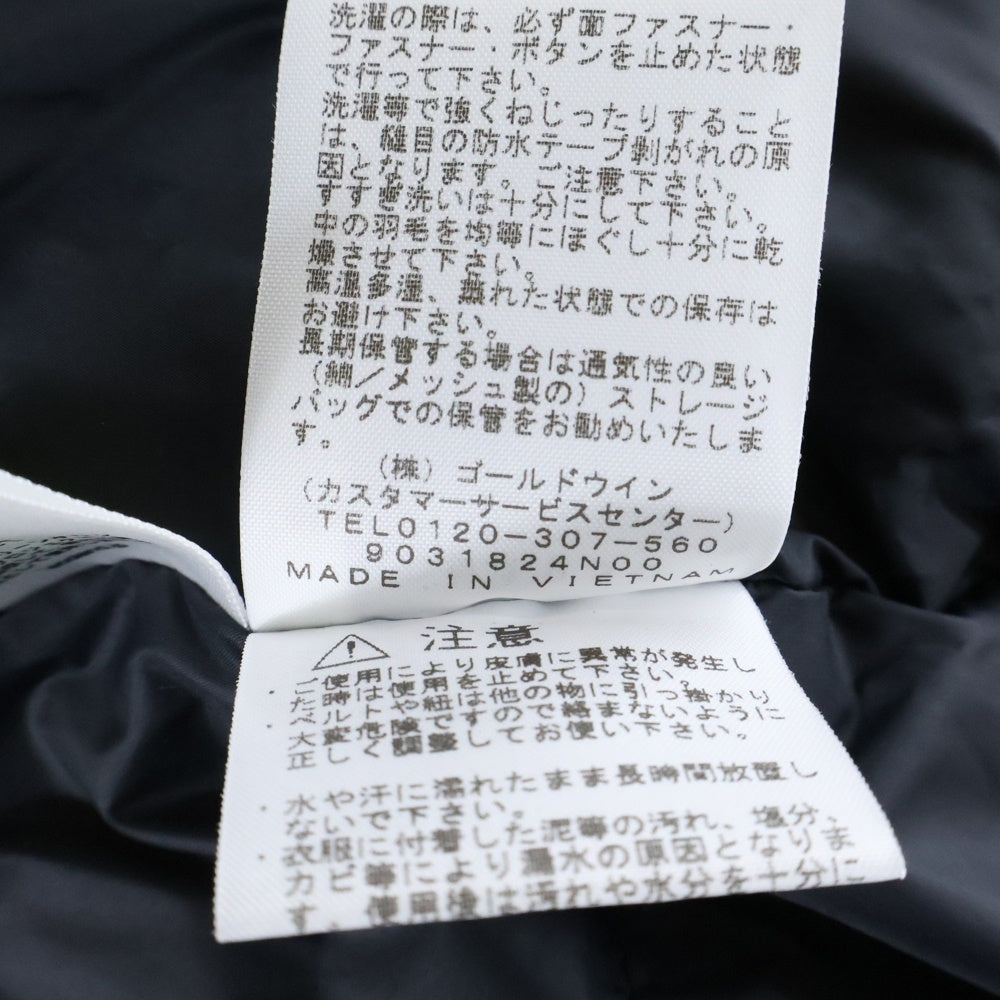 洗濯の際は、必ず面ファスナー・
ファスナー・ボタンを止めた状態
で行って下さい。
洗濯等で強くねじったりすること
は、縫目の防水テープ剥がれの原
因となります。ご注意下さい。
すすぎ洗いは十分にして下さい。
中の羽毛を均等にほぐし十分に乾
燥させて下さい。
高温多湿、蒸れた状態での保存は
お避け下さい。
長期保管する場合は通気性の良い
(網/メッシュ製の)ストレージ
バッグでの保管をお勧めいたしま
す。
(株)ゴールドウイン
(カスタマーサービスセンター)
TEL0120-307-560
9031824N00
MADE IN VIETNAM
注意
・ご使用により皮膚に異常が発生し
た時は使用を止めて下さい。
・ベルトや紐は他の物に引っ掛かり
大変危険ですので絡まないように
正しく調整してお使い下さい。
・水や汗に濡れたまま長時間放置し
ないで下さい。
・衣服に付着した泥等の汚れ、塩分、
カビ等により漏水の原因となりま
す。使用後は汚れや水分を十分に